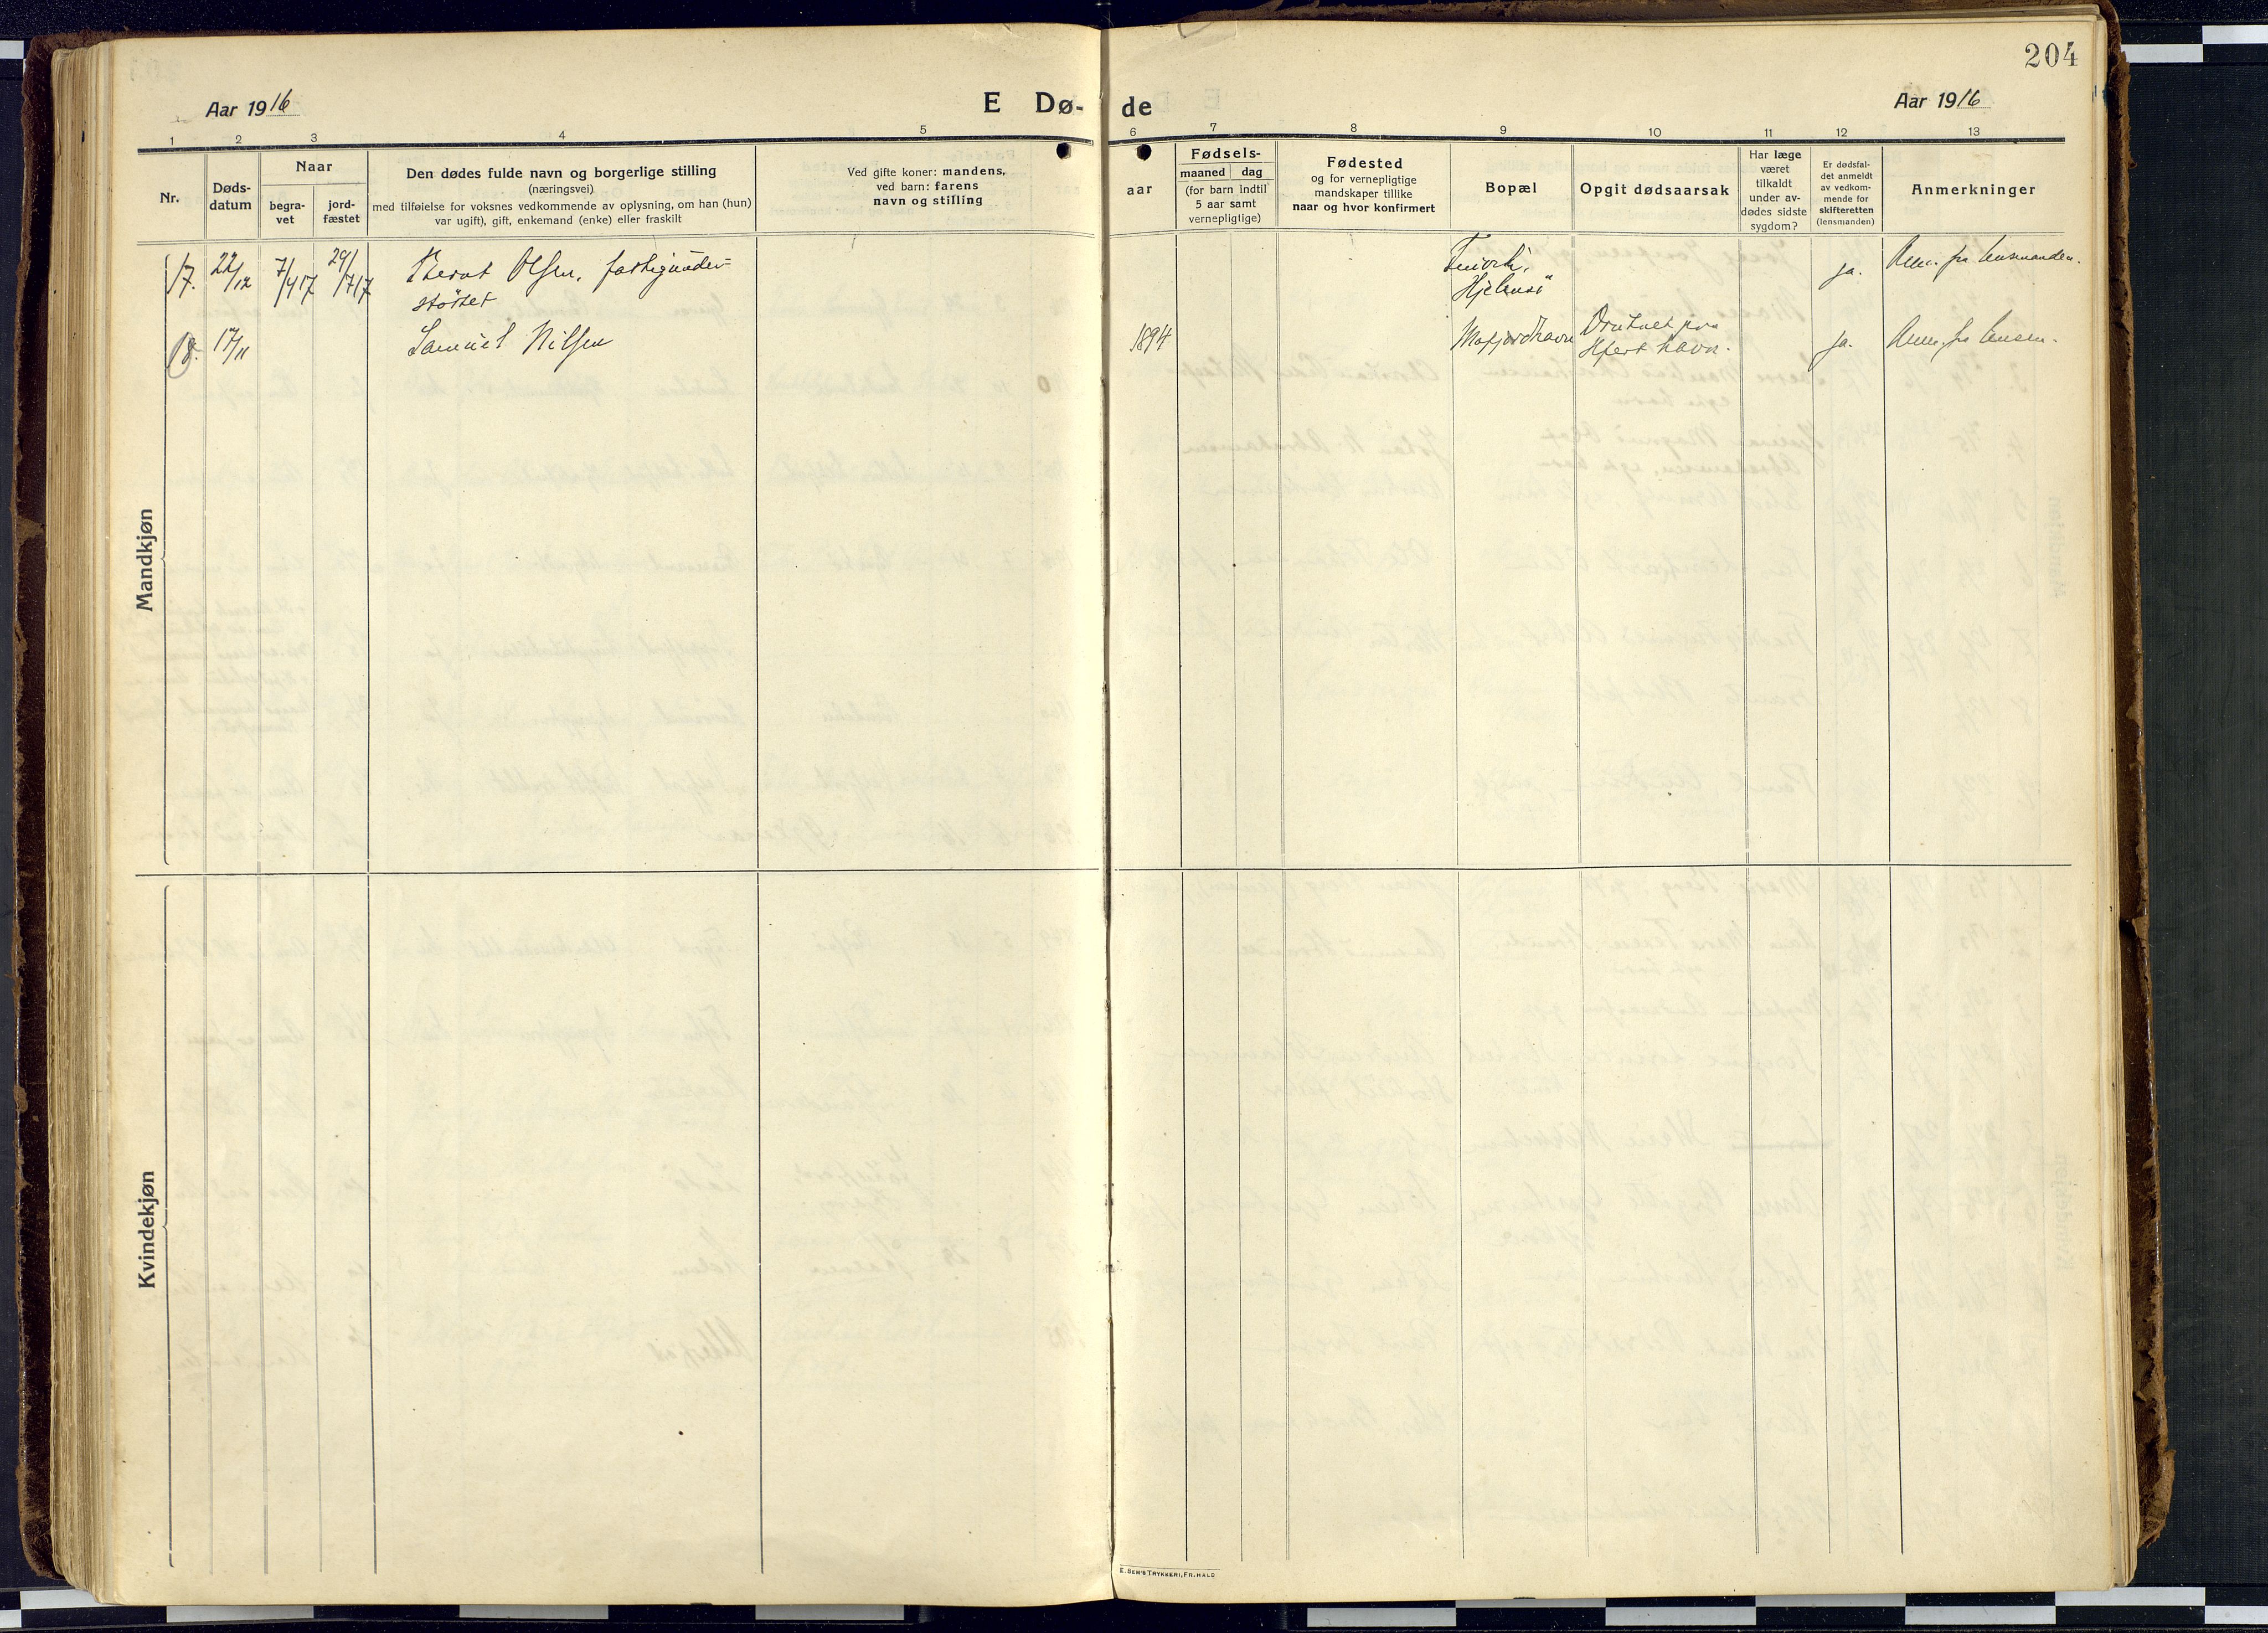 204
Aar 1916
E Dø-
de
Aar 1916
1 2 3 4 5 6 7 8 9 10 11 12 13
Nr.
Døds-
datum
Naar
begra-
vet
jord-
fæstet
Den dødes fulde navn og borgerlige stilling
(næringsvei)
med tilføielse for voksnes vedkommende av oplysning, om han (hun)
var ugift), gift, enkemand (enke) eller fraskilt
Ved gifte koner: mandens,
ved barn: farens
navn og stilling
aar
Fødsels-
maaned dag
(for barn indtil
5 aar samt
vernepligtige)
Fødested
og for vernepligtige
mandskaper tillike
naar og hvor konfirmert
Bopæl
Opgit dødsaarsak
Har læge
været
tilkaldt
under av-
dødes sidste
sygdom?
Er dødsfal-
det anmeldt
av vedkom-
mende for
skifteretten
(lensmanden)
Anmerkninger
Mandkjøn
17. 22/12 7/4 17 29/7 17 Bernt Olsen, fattigunder-
støttet
Hjelmsö
ja. Anm. fra lensmanden.
18. 17/11 Samuel Nilsen 1894 Mafjordhavn Druknet paa
havn.
ja. Anm. fra lensm.
Kvindekjøn
E. SEM'S TRYKKERI, FR.HALD